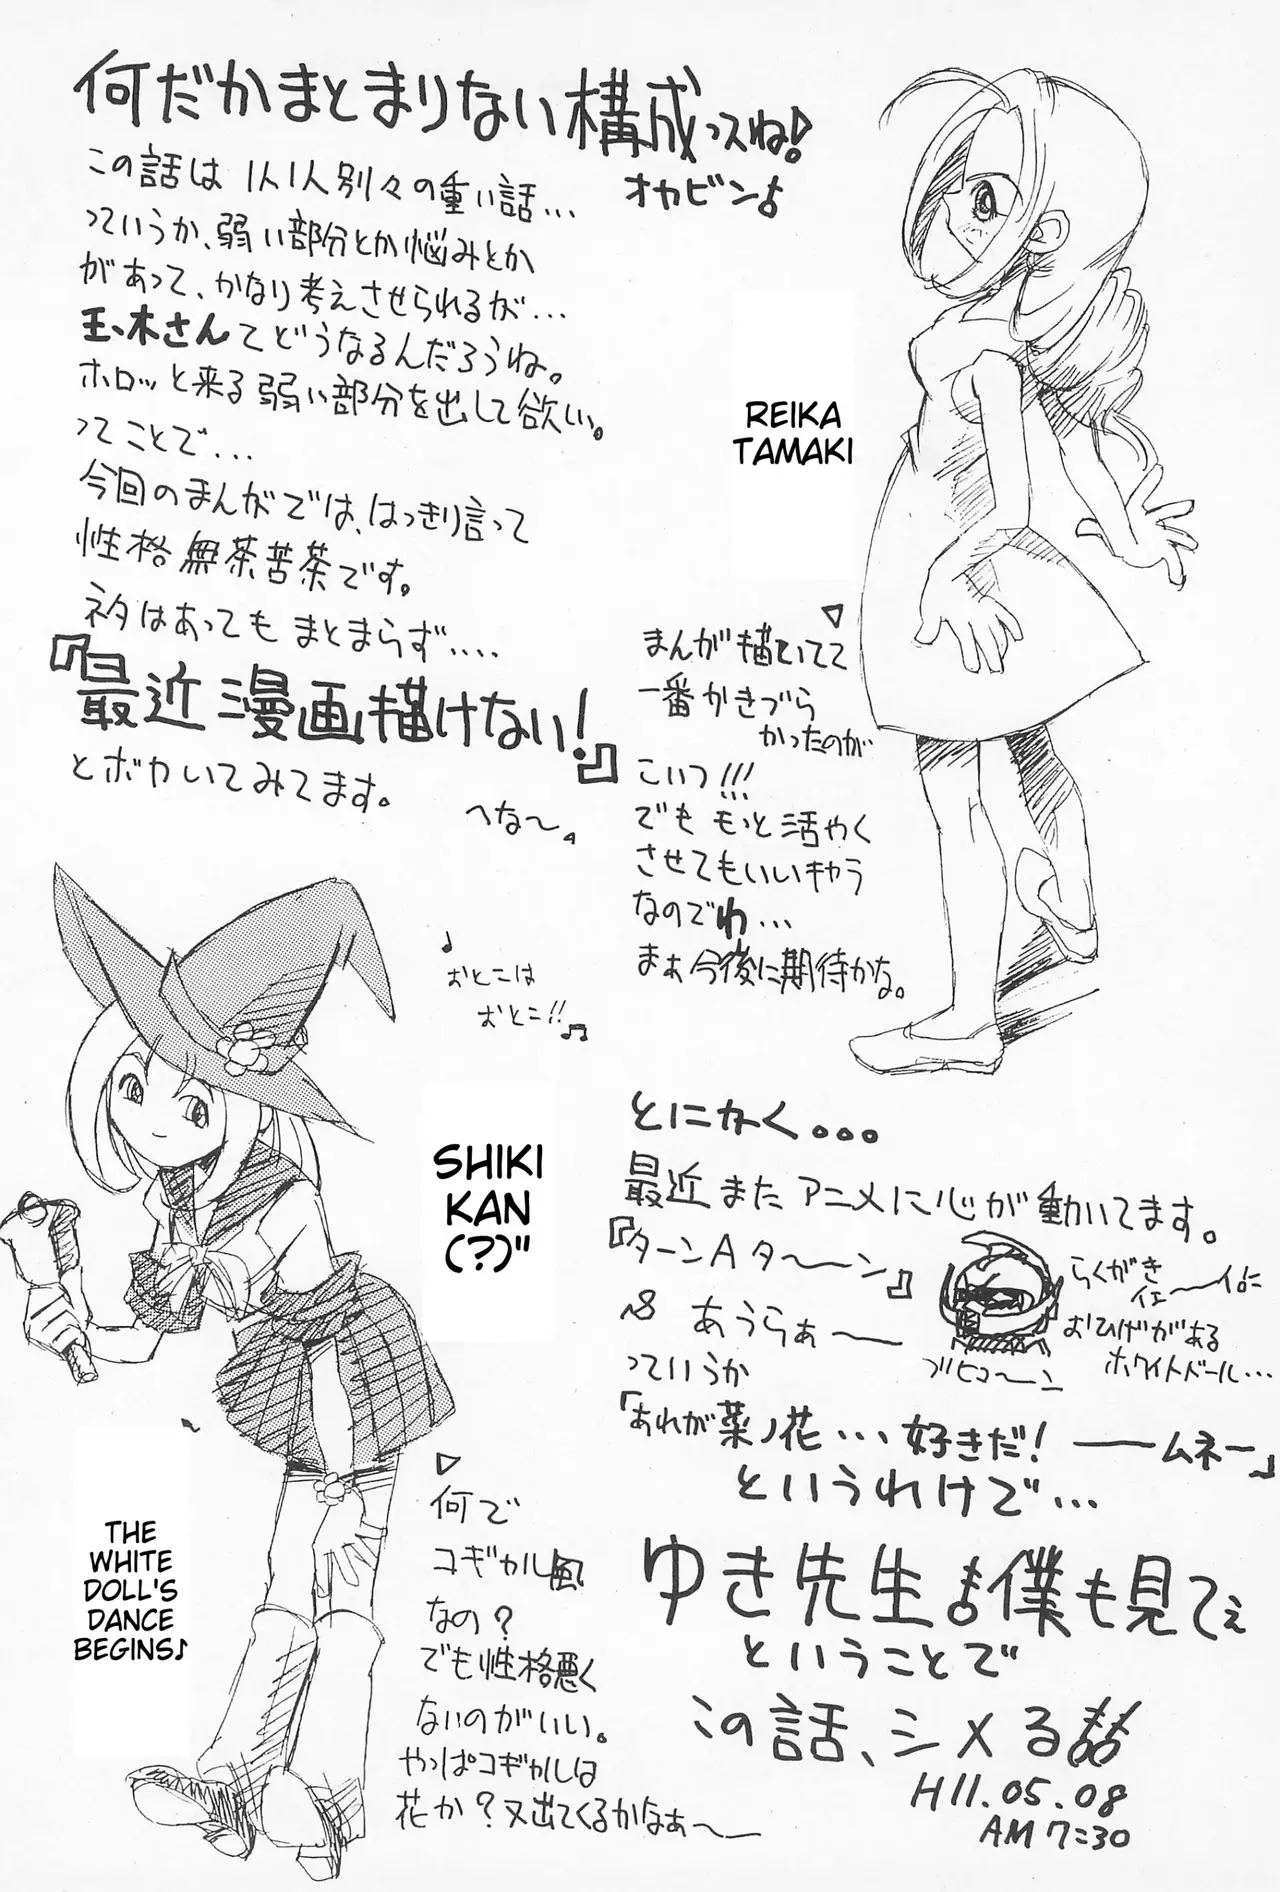 何だかまとまりない構成っスね!
オカピン♪
この話は1人1人別々の重い話…
っていうか、弱い部分とか悩みとか
があって、かなり考えさせられるが…
玉木さんてどうなるんだろうね。
ホロッと来る弱い部分を出して欲しい。
ってことで…
今回のまんがでは、はっきり言って
性格無茶苦茶です。
ネタはあってもまとまらず….
『最近漫画描けない!』
とボカいてみてます。
へな〜。
REIKA
TAMAKI
まんが描いてて
一番かきづら
かったのが
こいつ!!!
でももっと活やく
させてもいいキャラ
なのでわ…
まぁ今後に期待かな。
♪
おとこは
おとこ!!♫
SHIKI
KAN
(?)"
THE
WHITE
DOLL'S
DANCE
BEGINS♪
何で
コギャル風
なの?
でも性格悪く
ないのがいい。
やっぱコギャルは
花か?又出てくるかなぁ〜
とにかく。。。
最近またアニメに心が動いてます。
『ターンAターン』
らくがき
おひげがある
ホワイトドール…
ブヒューン
〜8 あうらぁ〜
っていうか
「あれが菜ノ花…好きだ! ——ムネー」
というわけで…
ゆき先生も僕も見てぇ
ということで
この話、シメる
H11.05.08
AM 7:30